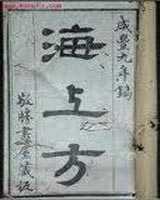 咸豐九年鐫
海上方
敬勝書屋藏板